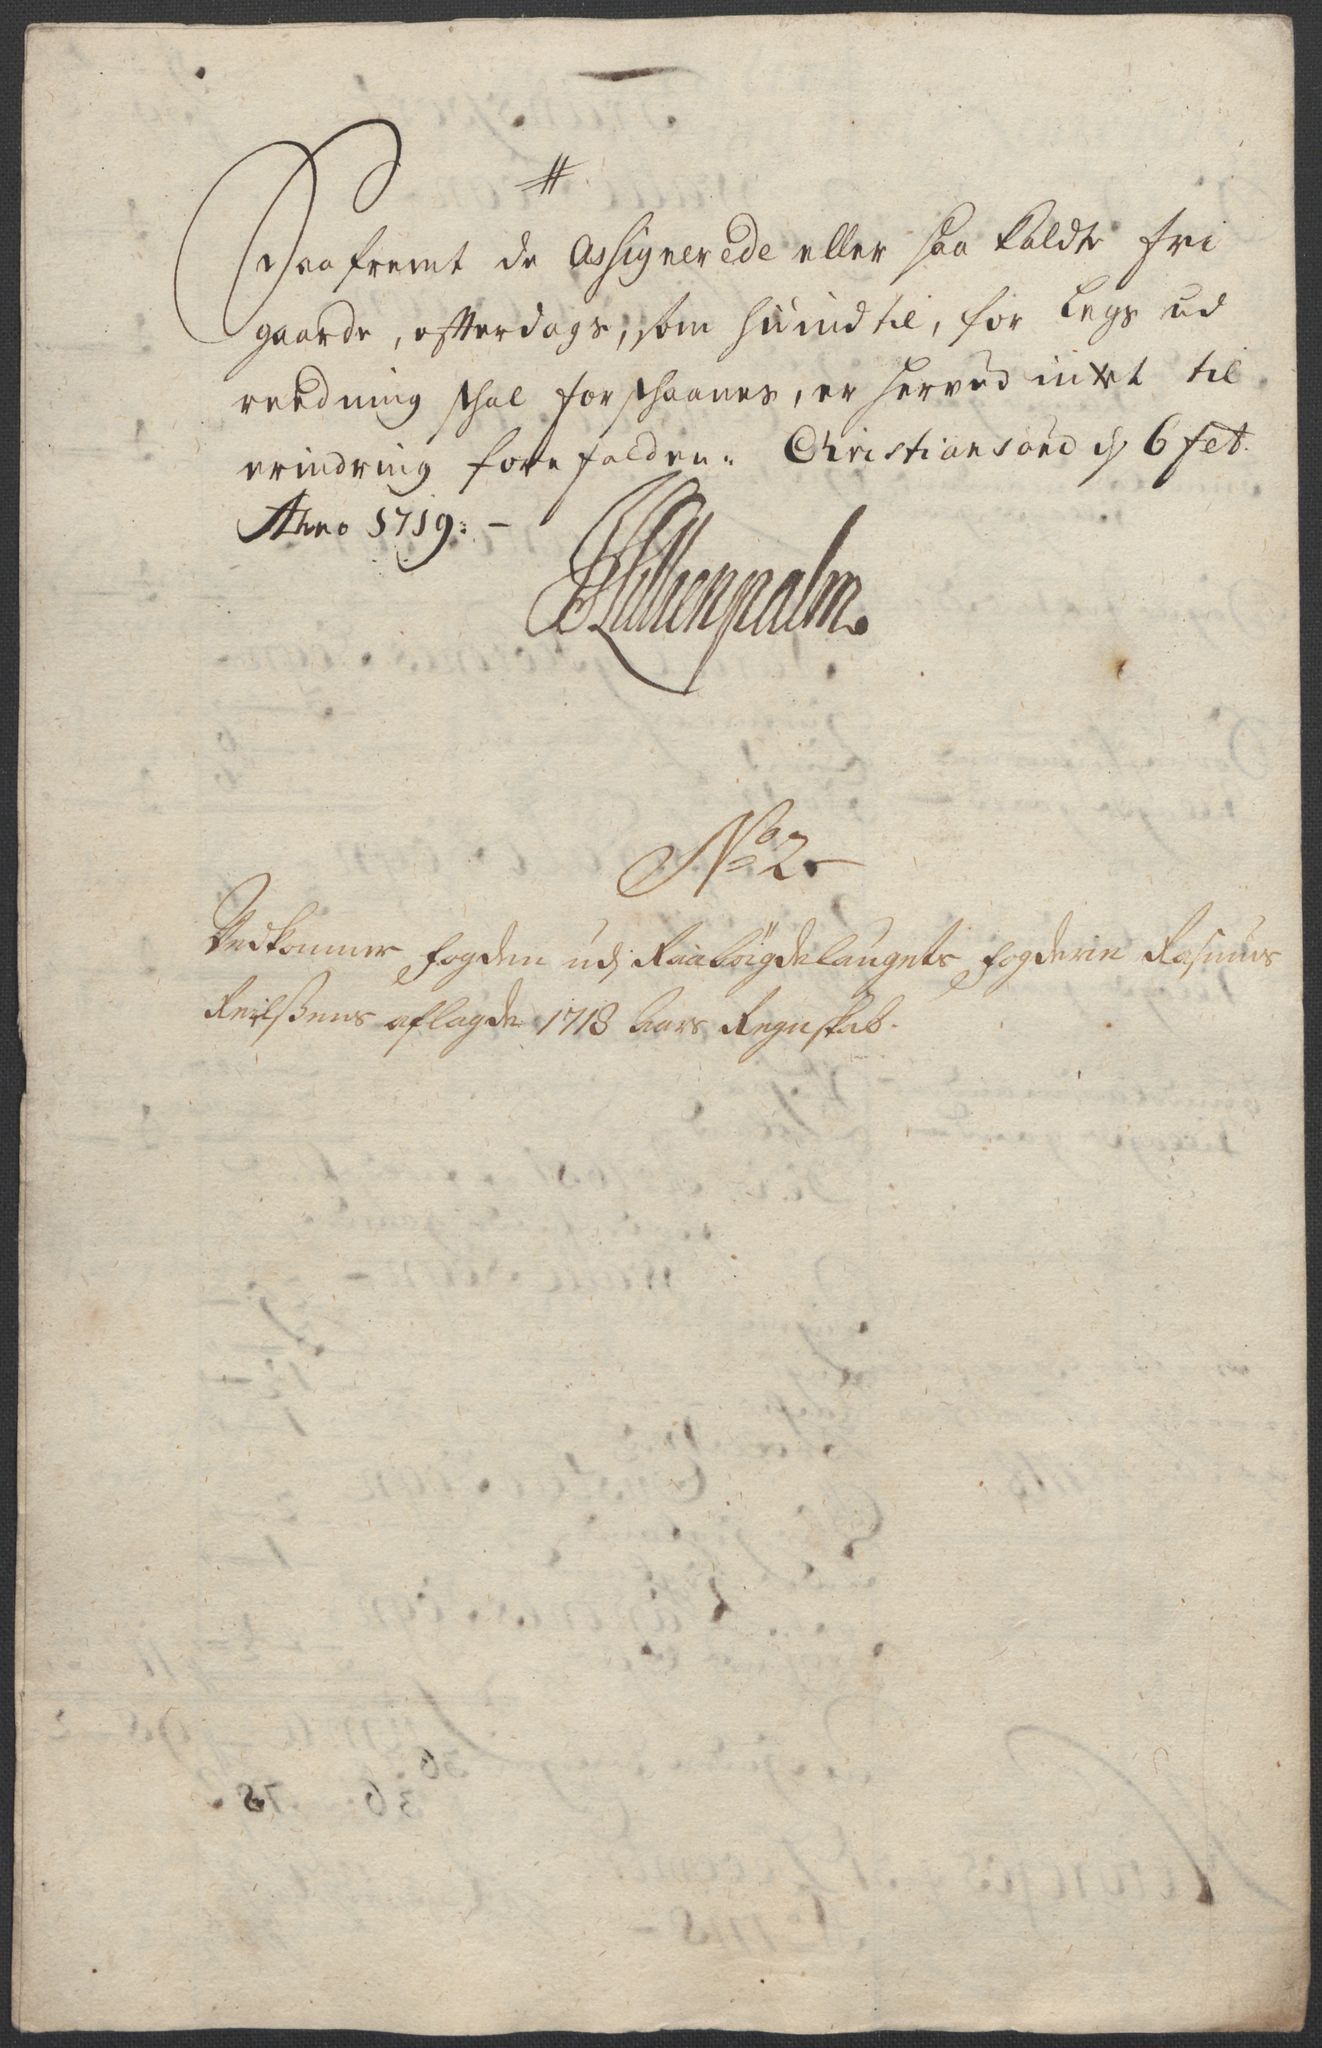 #
Saafremt de Assignerede eller saa kaldte fri
gaarde, efterdags, som hiindtil, for Legs ud
reedning skal forskaanes, er herved intet til
erindring forefalden. Christiansand d 6 feb.
Anno 1719: -
No 2.
Vedkommer fogden udj Raabÿigdelaugets fogderie Rasmus
aflagde 1718 Aars Regnskab.
36
36 78